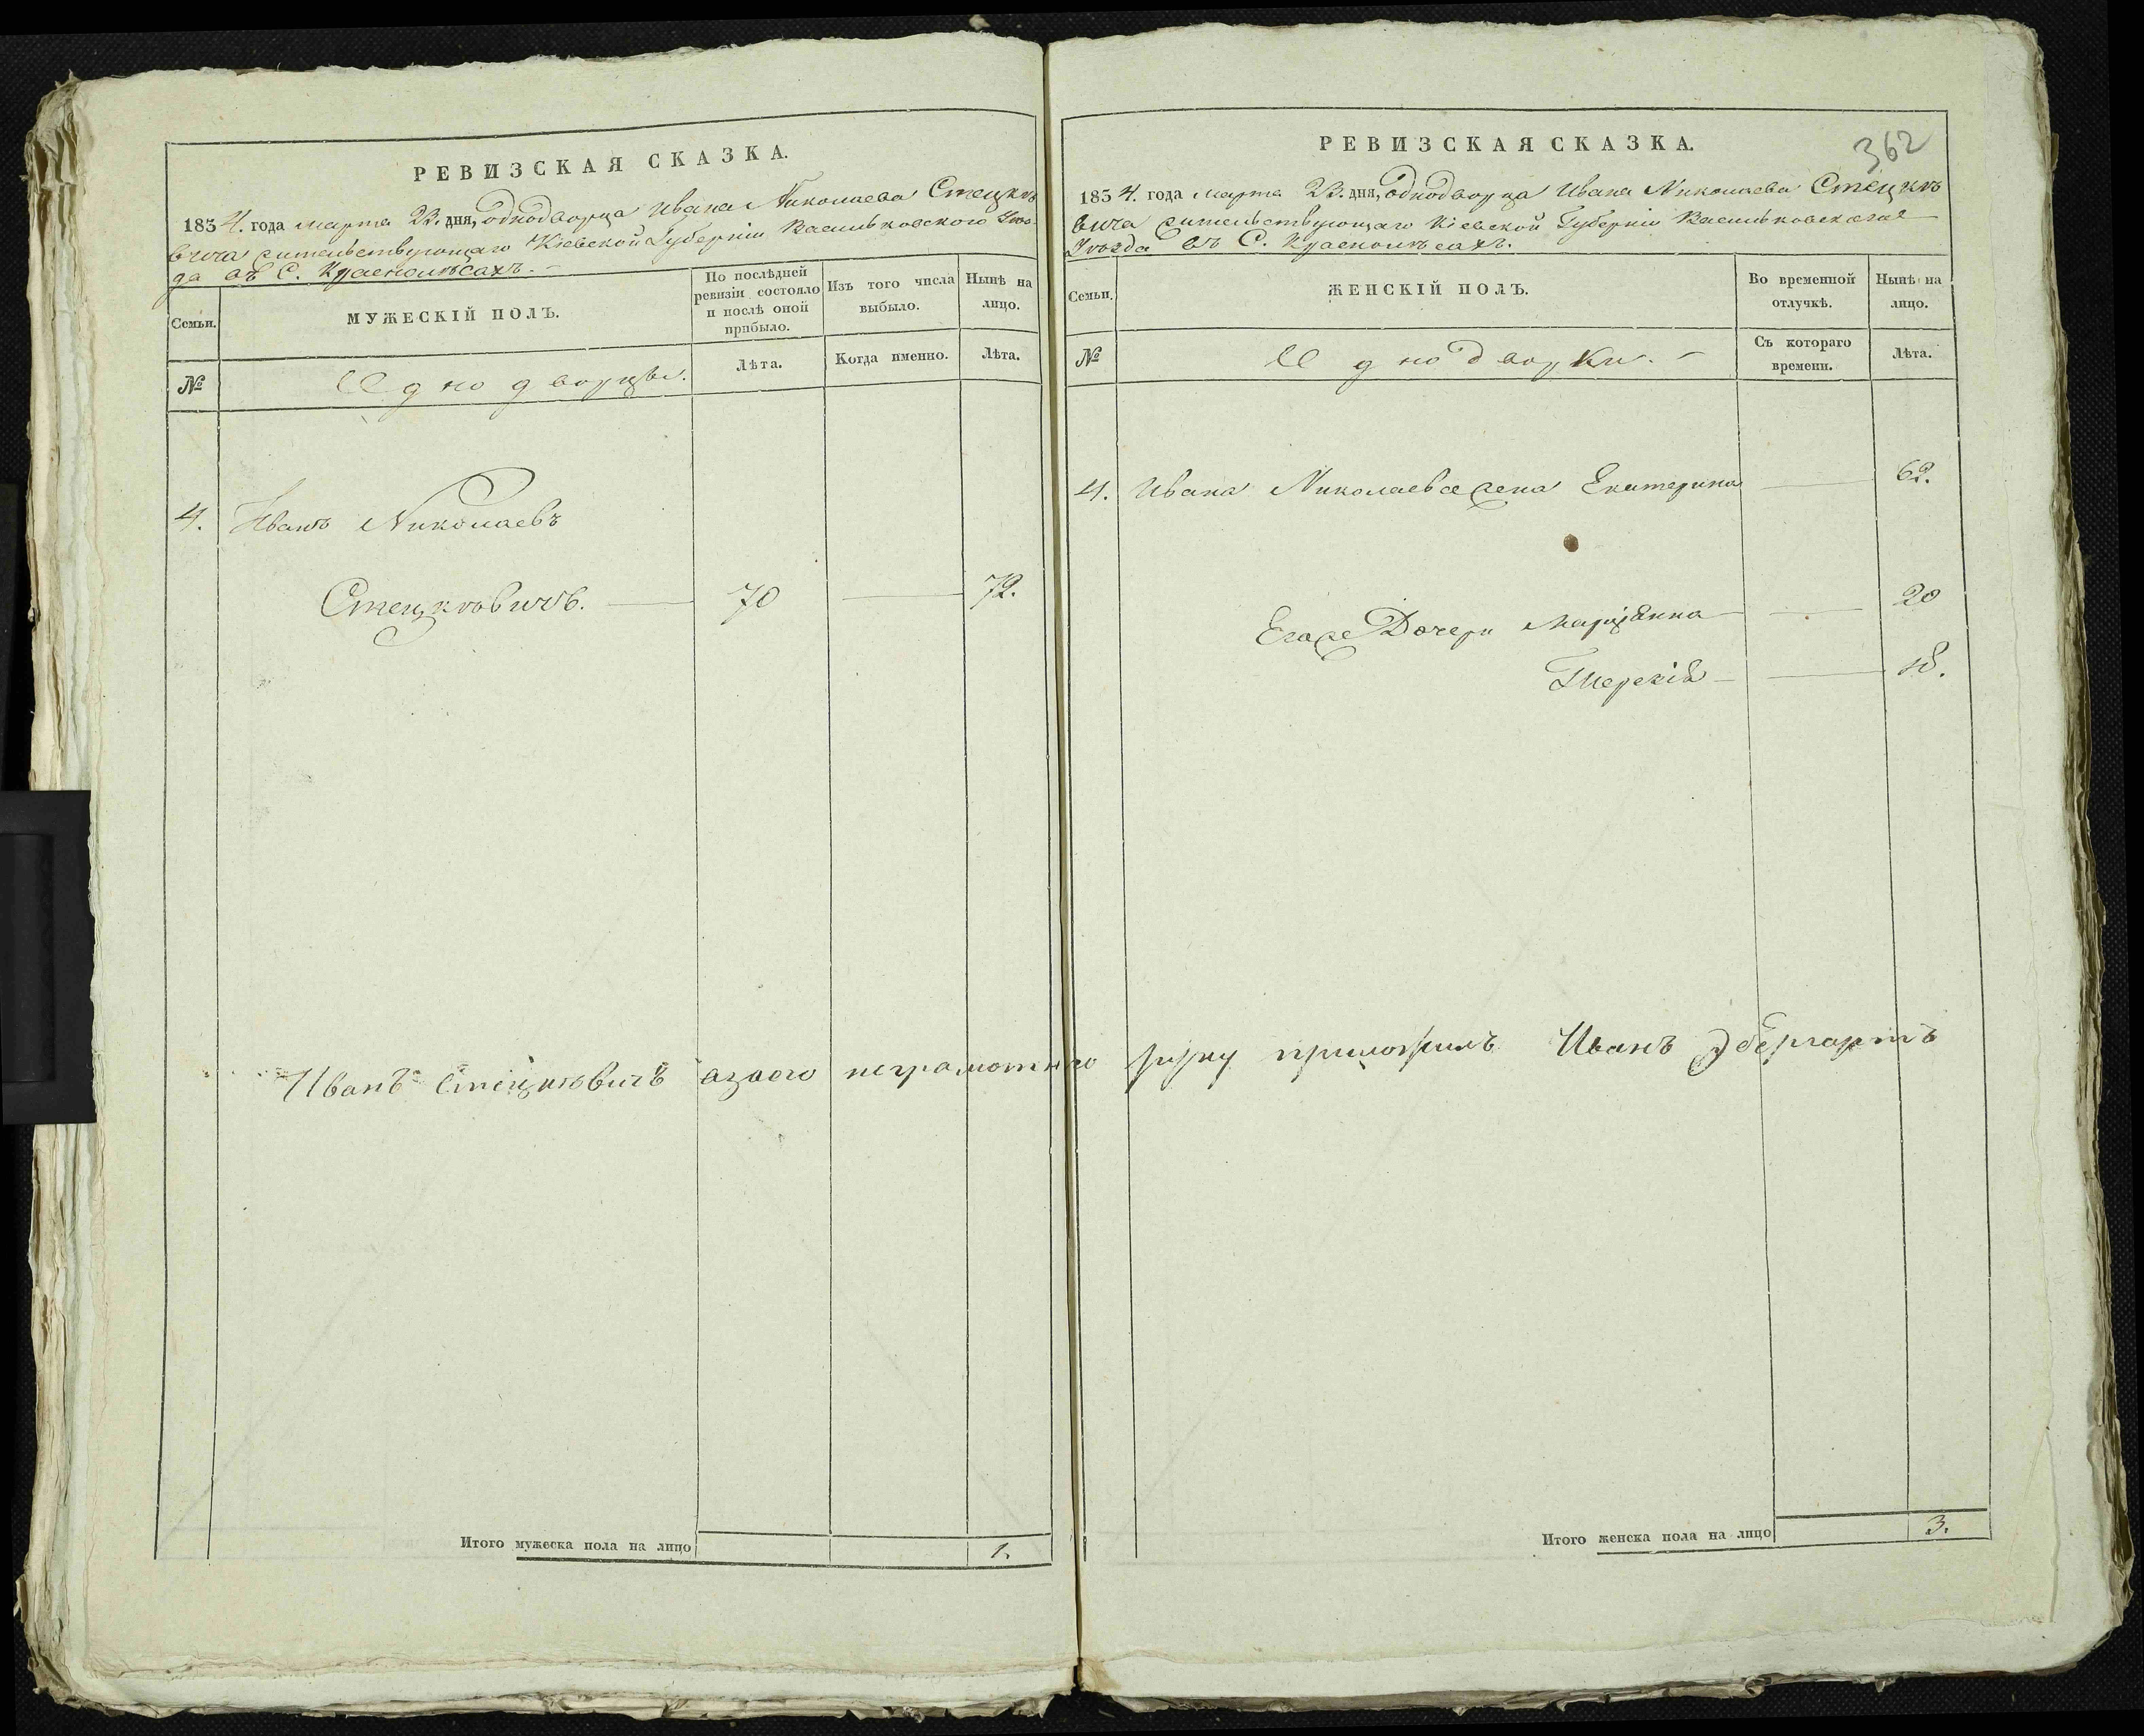 РЕВИЗСКАЯ СКАЗКА.
1834. года марта 23. дня, однодворца Ивана Николаева Стецкѣ
вича жительствующаго Кіевской Губерніи Васильковского Уѣз
да въ С. Красномъ Лѣсахъ.
Семьи.
МУЖЕСКІЙ ПОЛЪ.
По послѣдней ревизіи состояло и послѣ оной прибыло.
Изъ того числа выбыло.
Нынѣ на лицо.
№
Однодворцы.
Лѣта.
Когда именно.
Лѣта.
4. Иванъ Николаевъ
Стецкѣвичъ. 70 72.
Иванъ Стецкѣвичъ азаего неграмотного
Итого мужеска пола на лицо 1.
362
РЕВИЗСКАЯ СКАЗКА.
1834. года марта 23. дня, однодворца Ивана Николаева Стецкѣ
вича жительствующаго Кіевской Губерніи Васильковскаго
Уѣзда въ С.
Семьи.
ЖЕНСКІЙ ПОЛЪ.
Во временной отлучкѣ.
Нынѣ на лицо.
№
Однодворки.
Съ котораго времени.
Лѣта.
4. Ивана Николаева жена Екатерина 62.
Егоже Дочери Маріянна 20
18.
руку приложилъ Иванъ Эбергартъ
Итого женска пола на лицо 3.